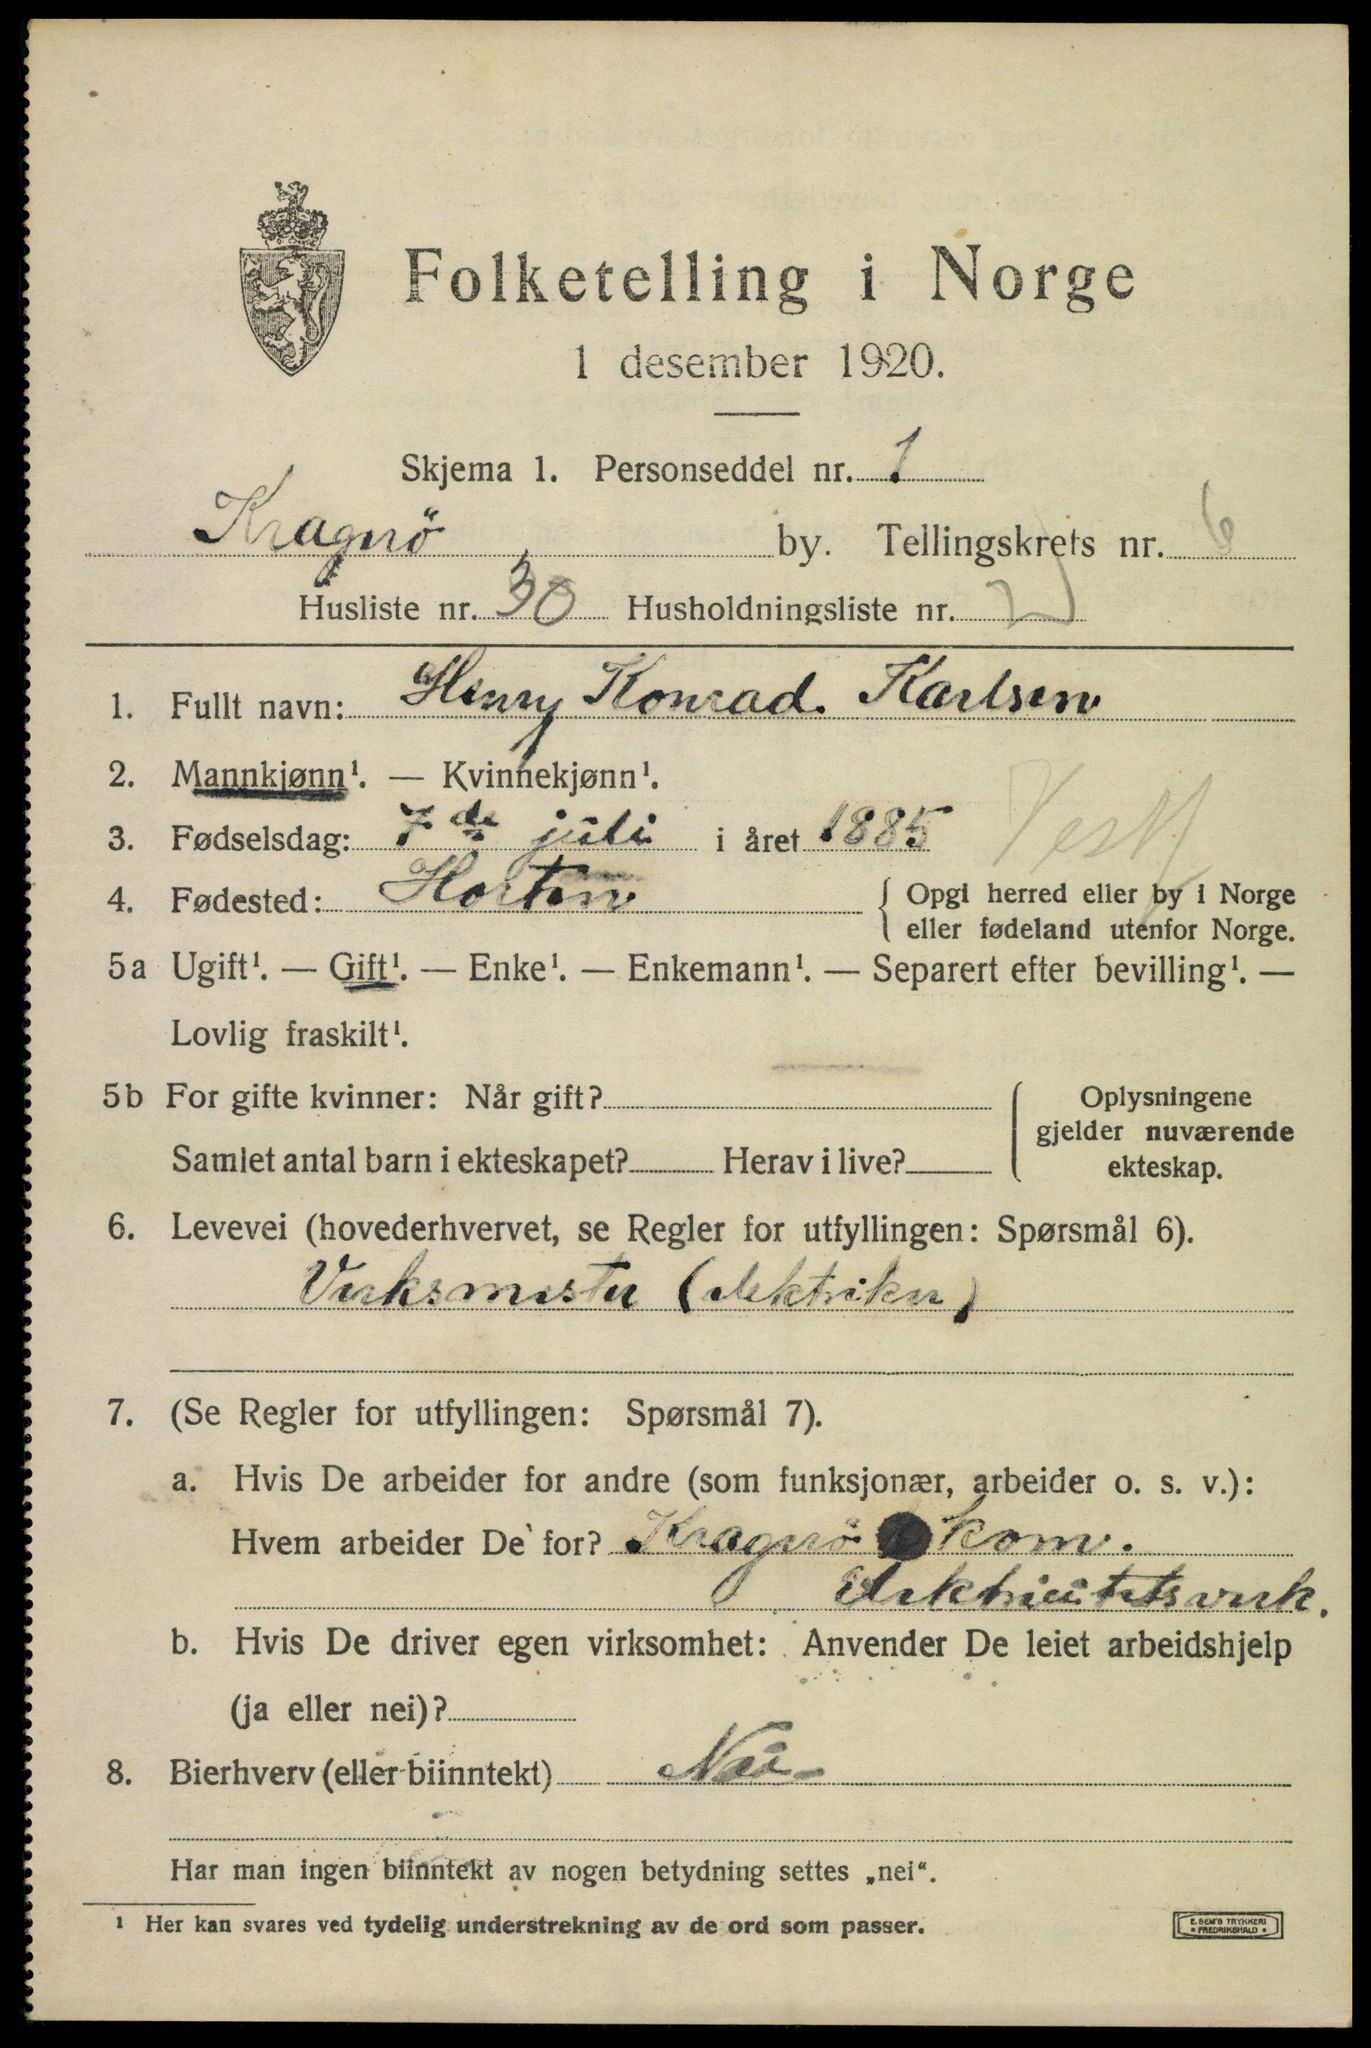 Folketelling i Norge
1 desember 1920.
Skjema 1. Personseddel nr. 1
Kragerö by. Tellingskrets nr. 6
Husliste nr. 30 Husholdningsliste nr. 2
1. Fullt navn: Henry Konrad Karlsen
2. Mannkjønn¹. — Kvinnekjønn¹.
3. Fødselsdag: 7de juli i året 1885
Vestf
4. Fødested: Horten { Opgi herred eller by i Norge
eller fødeland utenfor Norge.
5a Ugift¹. — Gift¹. — Enke¹. — Enkemann¹. — Separert efter bevilling¹. —
Lovlig fraskilt¹.
5b For gifte kvinner: Når gift?
Samlet antal barn i ekteskapet? Herav i live?
Oplysningene
gjelder nuværende
ekteskap.
6. Levevei (hovederhvervet, se Regler for utfyllingen: Spørsmål 6).
Verksmester (elektriker)
7. (Se Regler for utfyllingen: Spørsmål 7).
a. Hvis De arbeider for andre (som funksjonær, arbeider o. s. v.):
Hvem arbeider De for? Kragerö kom.
Elektricitetsverk.
b. Hvis De driver egen virksomhet: Anvender De leiet arbeidshjelp
(ja eller nei)?
8. Bierhverv (eller biinntekt) Nei
Har man ingen biinntekt av nogen betydning settes „nei“.
¹ Her kan svares ved tydelig understrekning av de ord som passer.
E. SEM'S TRYKKERI
• FREDRIKSHALD •